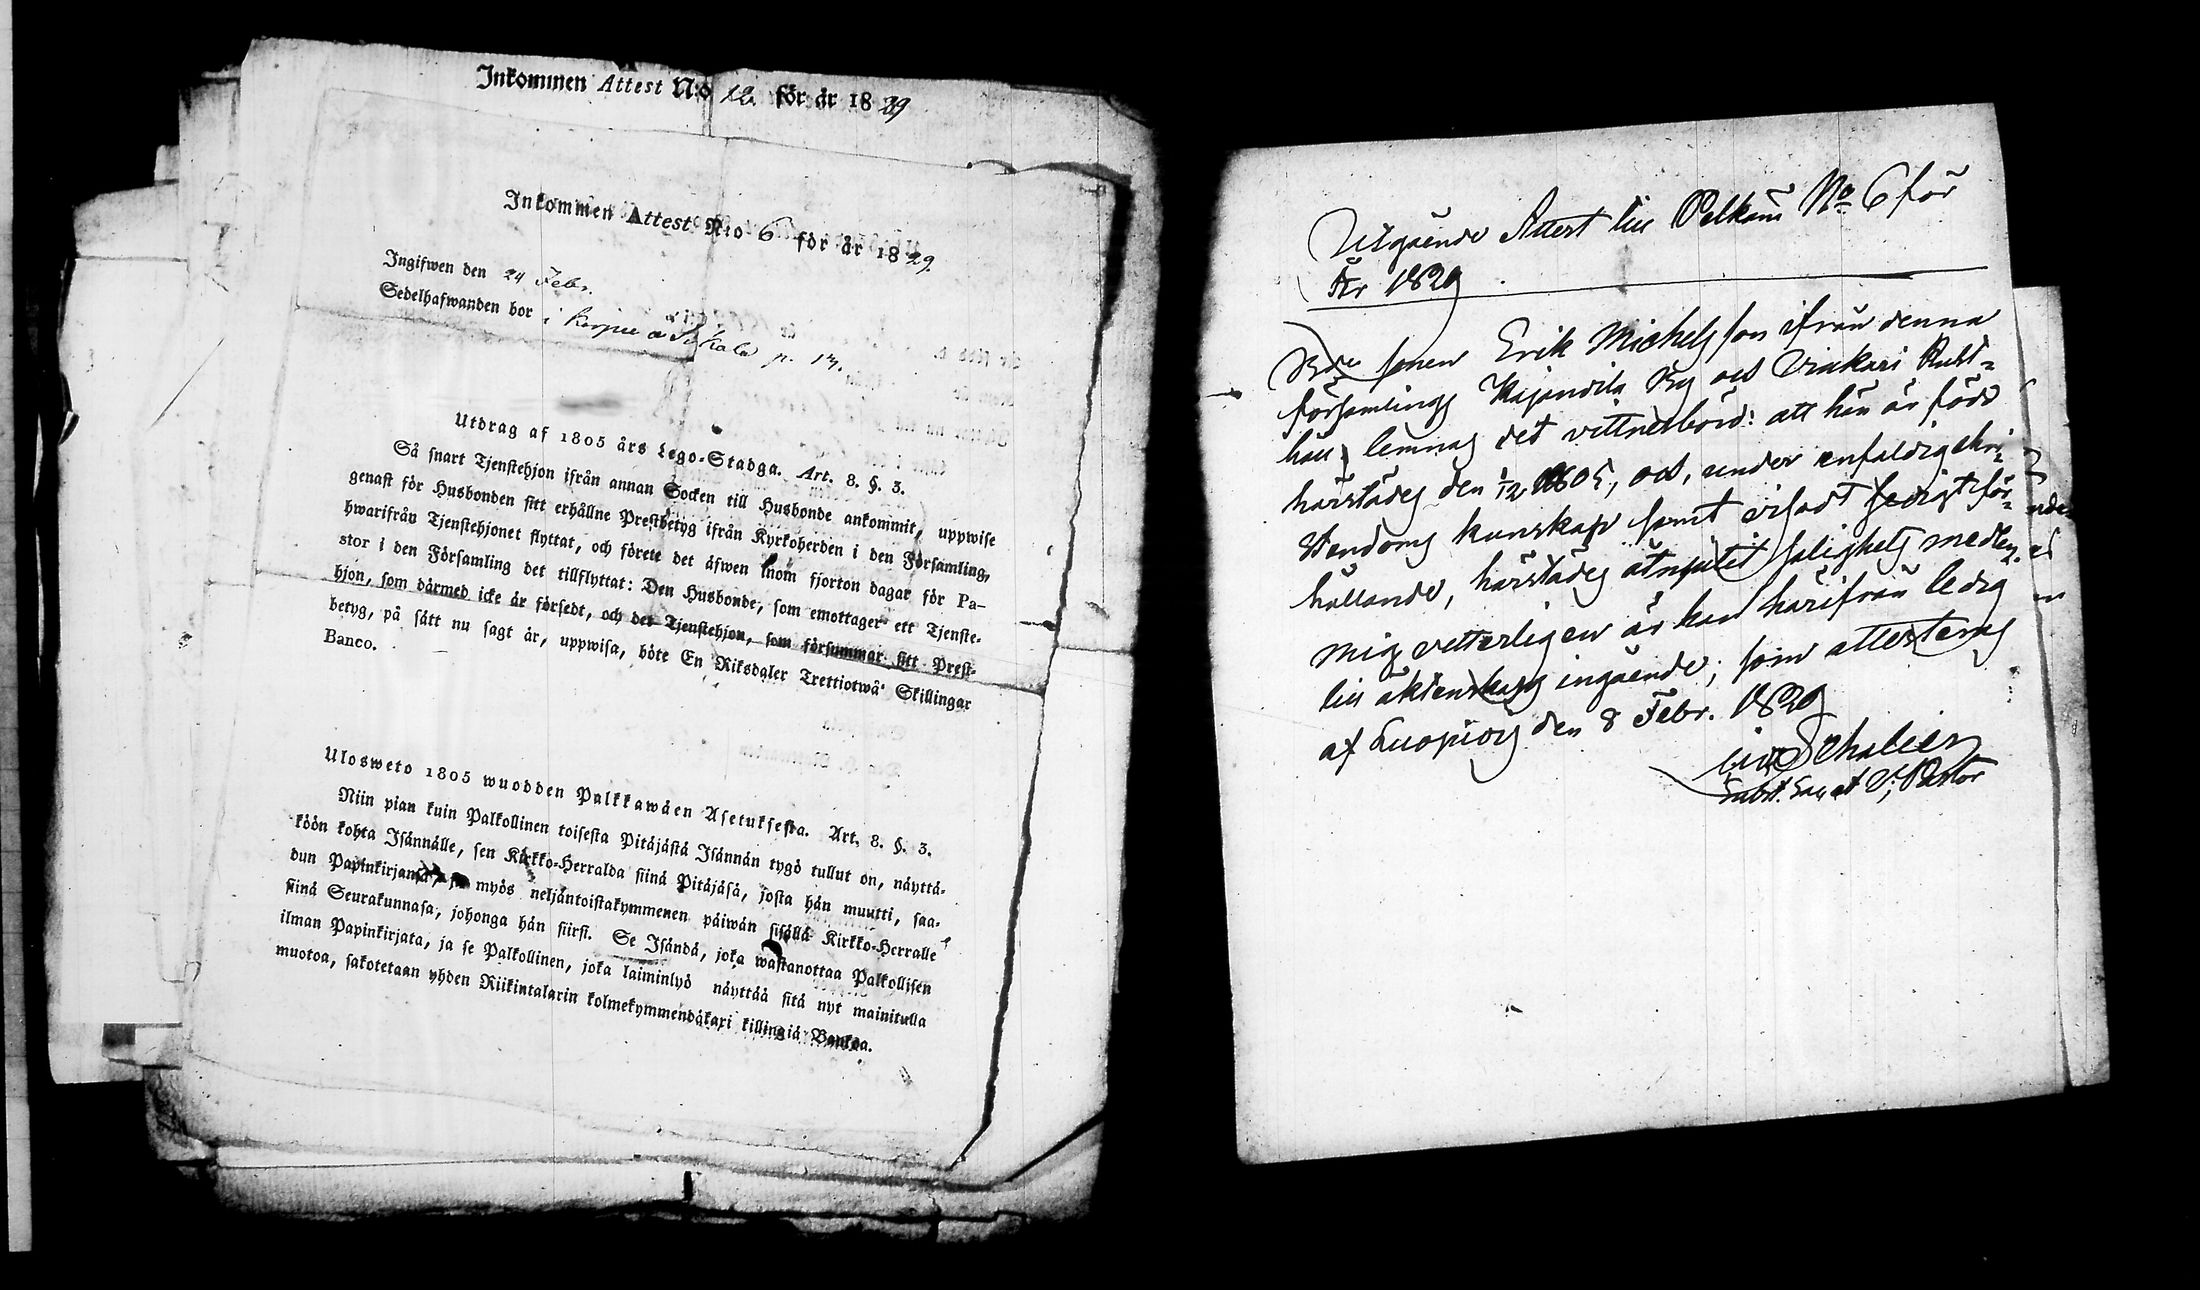 Inkommen Attest N:o 12. för år 1829
Inkommen Attest N:o 6 för år 1829.
Ingifwen den 24 Febr.
Sedelhafwanden bor i
p. 13.
Utdrag af 1805 års Lego-Stadga. Art. 8. §. 3.
Så snart Tjenstehjon ifrån annan Socken till Husbonde ankommit, uppwise
genast för Husbonden sitt erhållne Prestbetyg ifrån Kyrkoherden i den Församling,
hwarifrån Tjenstehjonet flyttat, och förete det äfwen inom fjorton dagar för Pa-
stor i den Församling det tillflyttat: Den Husbonde, som emottager ett Tjenste-
hjon, som därmed icke är försedt, och det Tjenstehjon, som försummar sitt Prest-
betyg, på sätt nu sagt är, uppwisa, böte En Riksdaler Trettiotwå Skillingar
Banco.
Ulosweto 1805 wuodden Palkkawäen Asetuksesta. Art. 8. §. 3.
Niin pian kuin Palkollinen toisesta Pitäjästä Isännän tygö tullut on, näyttä-
köön kohta Isännälle, sen Kirkko-Herralda siinä Pitäjäsä, josta hän muutti, saa-
dun Papinkirjansa, ja myös neljäntoistakymmenen päiwän sisällä Kirkko-Herralle
siinä Seurakunnasa, johonga hän siirsi. Se Isändä, joka wastanottaa Palkollisen
ilman Papinkirjata, ja se Palkollinen, joka laiminlyö näyttää sitä nyt mainitulla
muotoa, sakotetaan yhden Riikintalarin kolmekymmendäkaxi killingiä Bankoa.
Utgående Attest till Pelkäne No 6 för
År 1829
sonen Erik Michelsson ifrån denna
församlings Kajandila By och Rust-
håll lemnas det vittnesbörd: att han är född
härstädes den 1/12 1805, och, under enfaldig chri-
stendoms kunskap samt visadt sedigt för-
hållande, härstädes åtnjutit salighets medlen.
Mig vetterligen är han härifrån ledig
till äktenskaps ingående; som attesteras
af Luopiois den 8 Febr. 1829
V. Pastor